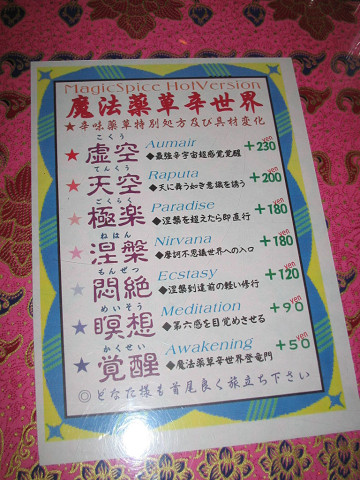 MagicSpice HotVersion
魔法薬草辛世界
★辛味薬草特別処方及び具材変化
こくう
★ 虚空 Aumair +230 yen
◆最強辛宇宙超感覚覚醒
てんくう
★ 天空 Raputa +200 yen
◆天に舞う如き意識を誘う
ごくらく
★ 極楽 Paradise +180 yen
◆涅槃を超えたら即直行
ねはん
★ 涅槃 Nirvana +180 yen
◆摩訶不思議世界への入口
もんぜつ
★ 悶絶 Ecstasy +120 yen
◆涅槃到達前の軽い修行
めいそう
★ 瞑想 Meditation +90 yen
◆第六感を目覚めさせる
かくせい
★ 覚醒 Awakening +50 yen
◆魔法薬草辛世界登竜門
◎どなた様も首尾良く旅立ち下さい